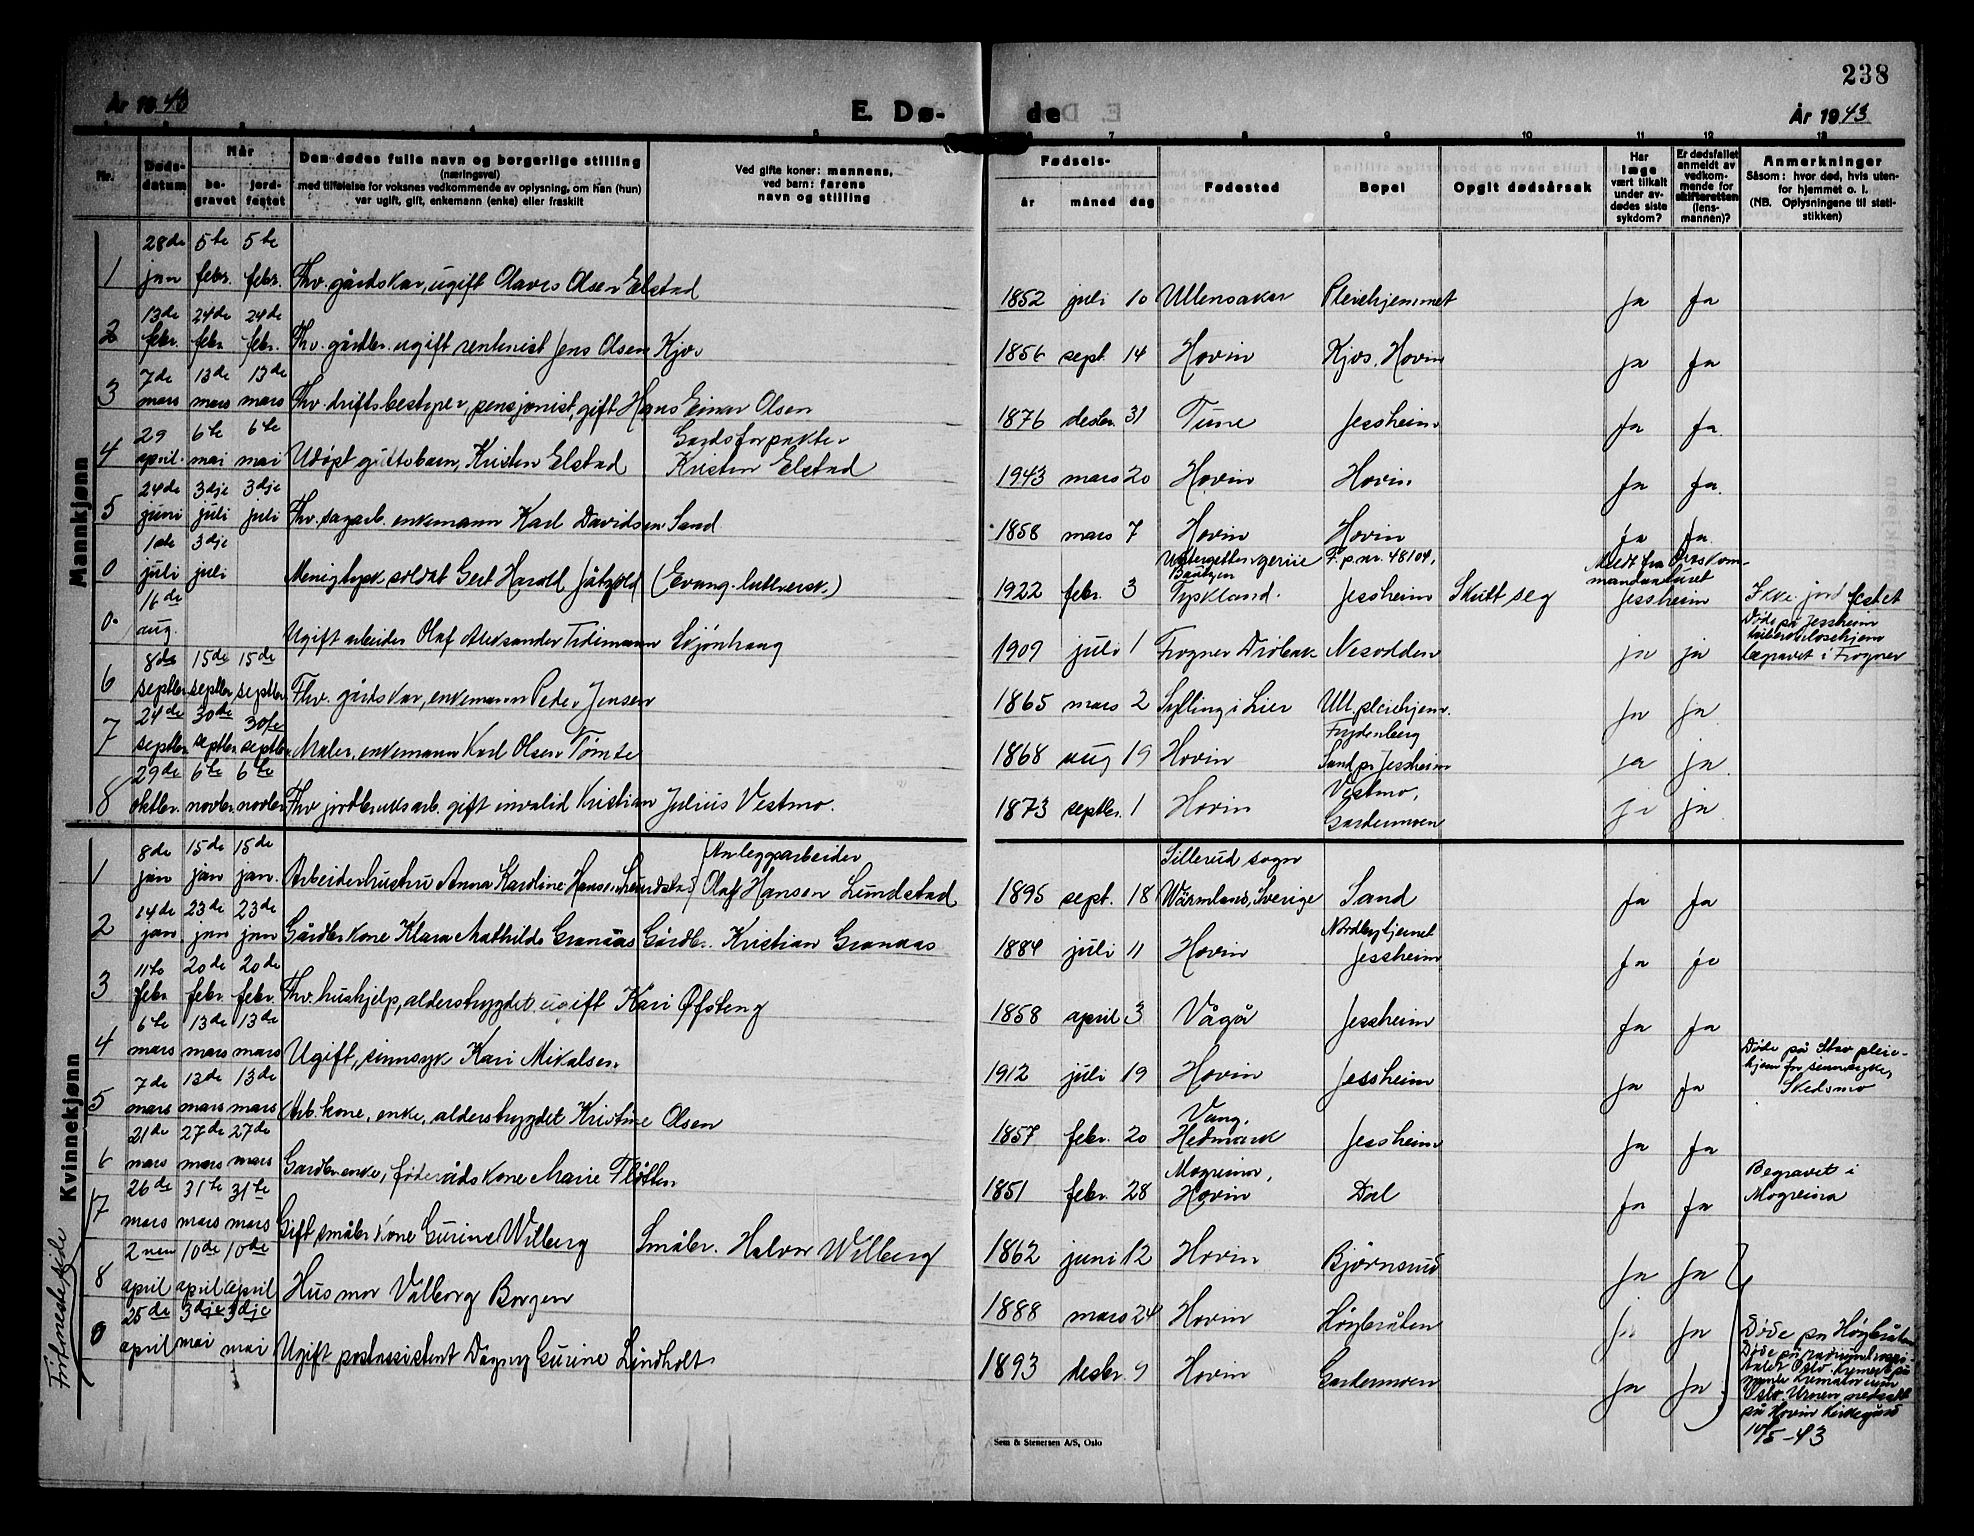 238
År 1943
E. Dø-
de
År 1943
1
7
8
9
10
11
12
13
Nr.
Døds-
datum
Når
be-
gravet
jord-
festet
Den dødes fulle navn og borgerlige stilling
(næringsvei)
med tilføielse for voksnes vedkommende av oplysning, om han (hun)
var ugift, gift, enkemann (enke) eller fraskilt
Ved gifte koner: mannens,
ved barn: farens
navn og stilling
Fødsels-
år måned dag
Fødested
Bopel
Opgit dødsårsak
Har
læge
vært tilkalt
under av-
dødes siste
sykdom?
Er dødsfallet
anmeldt av
vedkom-
mende for
skifteretten
(lens-
mannen)?
Anmerkninger
Såsom: hvor død, hvis uten-
for hjemmet o. l.
(NB. Oplysningene til stati-
stikken)
Mannkjønn
1 28de jan 5te febr. 5te febr. Fhv. gårdskar, ugift Olaves Olsen Elstad 1852 juli 10 Ullensaker Pleiehjemmet ja ja
2 13de febr. 24de febr 24de febr. Fhv. gårdbr. ugift rentenist Jens Olsen Kjos 1856 sept. 14 Hovin Kjos, Hovin ja ja
3 7de mars 13de mars 13de mars Fhv. driftsbestyrer, pensjonist, gift Hans Einar Olsen 1876 desbr. 31 Tune Jessheim ja ja.
4 29 april. 6te mai 6te mai Udøpt guttebarn, Kristen Elstad Gardsforpakter Kristen Elstad 1943 mars 20 Hovin Hovin ja ja.
5 24de juni 3dje juli 3dje juli Fhv. sagarb. enkemann Karl Davidsen Sand 1858 mars 7 Hovin Hovin ja ja.
0 1ste juli 3dje juli Menig tysk soldat Gert Harold Jätzold (Evang. luthersk.) 1922 febr. 3 Bautzen Tyskland. F.p.nr. 48104, Jessheim Skutt seg Meldt fra Jessheim Ikke jordfestet
0. 16de aug. Ugift arbeider Olaf Aleksander Tidemann Skjønhaug 1909 juli 1 Frogner Drøbak Nesodden ja ja Døde på Jessheim tuberkulosehjem begravet i Frogner
6 8de septbr 15de septbr. 15de septbr. Fhv. gårdskar, enkemann Peder Jensen 1865 mars 2 Sylling i Lier Ull. pleiehjem. Frydenberg ja ja
7 24de septbr. 30de septbr. 30te septbr. Maler, enkemann Karl Olsen Tømte 1868 aug 19 Hovin Sand pr Jessheim ja ja
8 29de oktbr. 6te novbr. 6te novbr. Fhv jordbruksarb. gift invalid Kristian Julius Vestmo. 1873 septbr. 1 Hovin Vestmo, Gardermoen ja ja
Kvinnekjønn
1 8de jan 15de jan 15de jan. Arbeiderhustru Anna Karoline Hansen Lundstad Anleggarbeider Olaf Hansen Lundstad 1895 sept. 18 Sillerud sogn Wärmland, Sverige Sand ja ja
2 14de jan 23de jan 23de jan Gårdbr kone Klara Mathilde Granaas Gårdbr. Kristian Granaas 1884 juli 11 Hovin Nordbytjernet Jessheim ja ja
3 11te febr 20de febr. 20de febr. Fhv. hushjelp, alderstrygdet ugift Kari Øfsteng 1858 april 3 Vågå Jessheim ja ja
4 6te mars 13de mars 13de mars Ugift, sinnsyk Kari Mikalsen 1912 juli 19 Hovin Jessheim ja ja Døde på pleiehjem for sinnsyke, Skedsmo
5 7de mars 13de mars 13de mars Arb. kone, enke, alderstrygdet Kristine Olsen 1857 febr. 20 Vang, Hedmark Jessheim ja ja
6 21de mars 27de mars 27de mars Gardbr enke, føderådskone Marie Fløtten 1851 febr. 28 Mogreina, Hovin Dal ja ja Begravet i Mogreina
7 26de mars 31te mars 31te mars Gift småbr. kone Gurine Wilberg Småbr. Halvor Wilberg 1862 juni 12 Hovin Bjørnsund ja ja
8 2nen april 10de april 10de april Husmor Valborg Borgen 1888 mars 24 Hovin Høgbråten ja ja Døde på Høgbråten
0 25de april 3dje mai 3dje mai Ugift postassistent Dagny Gurine Lindholt 1893 desbr. 9 Hovin Gardermoen ja ja Døde på radiumhospitalet Oslo. Kremert på krematorium Oslo. Urnen nedsatt på Hovin Kirkegård 10/5-43
Sem & Stenersen A/S, Oslo